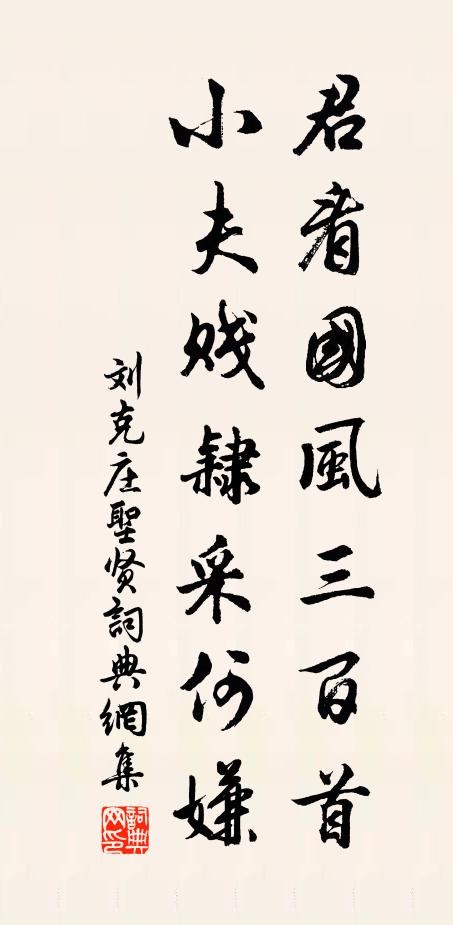 君看國風三百首
小夫賤隸采何嫌
刘克庄聖贤詞典網集
詞典网印